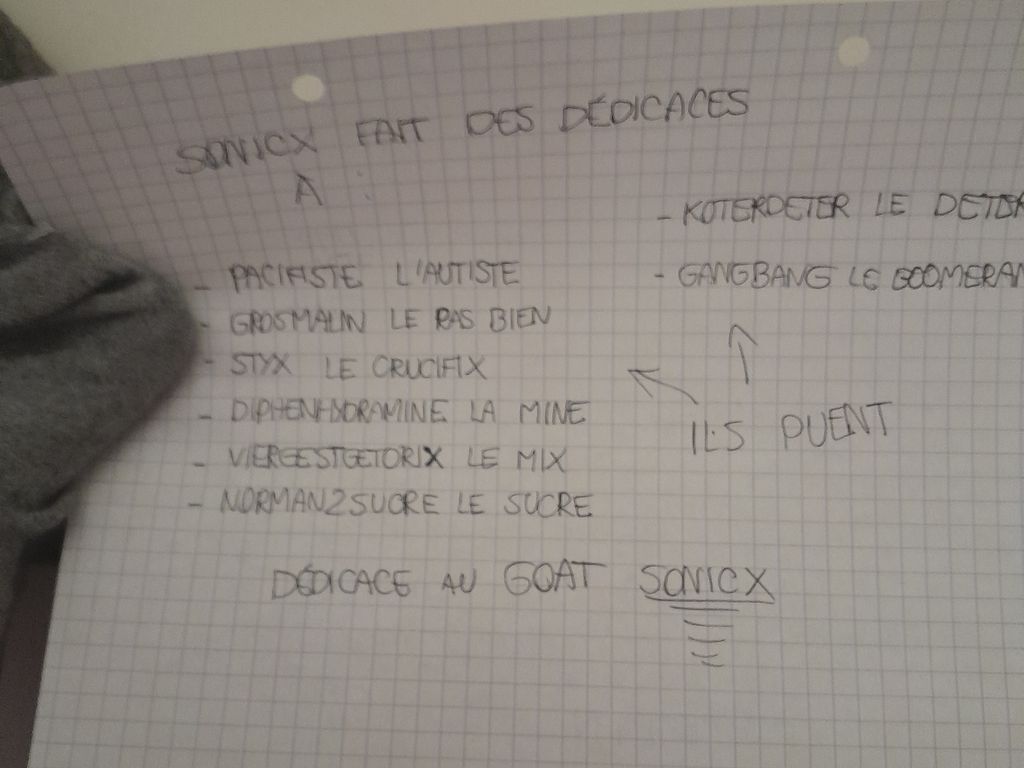 SONICX FAIT DES DÉDICACES
À :
- PACIFISTE L'AUTISTE
- GROSMALIN LE PAS BIEN
- STYX LE CRUCIFIX
- DIPHENHYDRAMINE LA MINE
- VIERGESTGETORIX LE MIX
- NORMAN2SUCRE LE SUCRE
- KOTERDETER LE DETER
- GANGBANG LE BOOMERAN
ILS PUENT
DÉDICACE AU GOAT SONICX